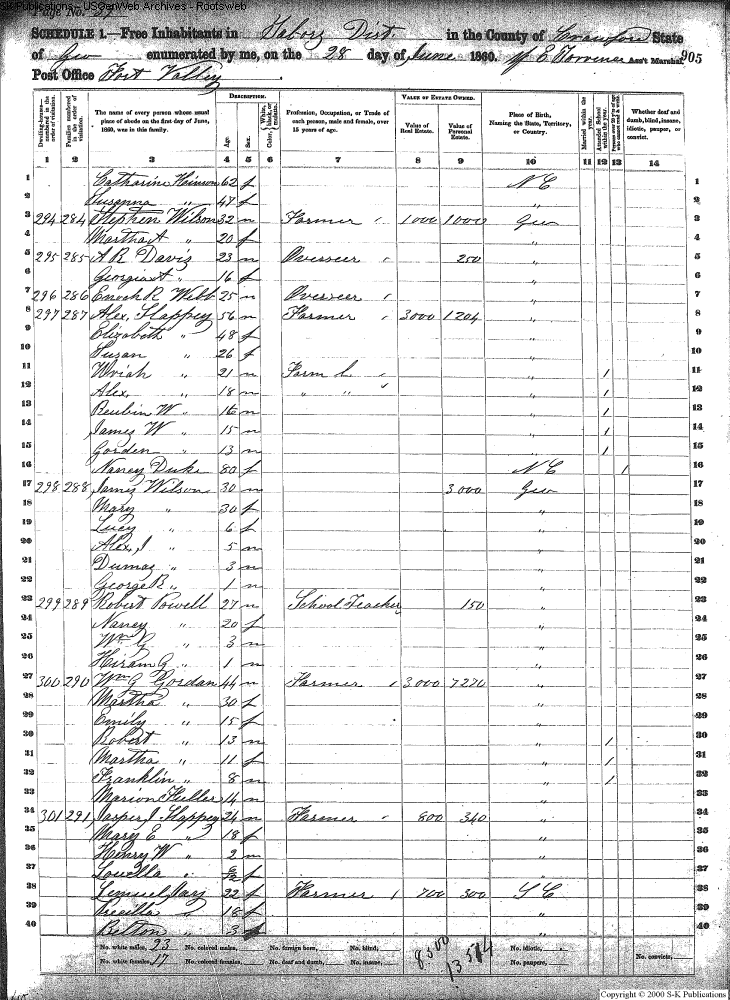 SK Publications - USGenWeb Archives - Rootsweb
Page No. 37
SCHEDULE 1.—Free Inhabitants in Dist. in the County of Crawford State
of Geo enumerated by me, on the 28 day of June 1860. Ass't Marshal 905
Post Office Fort Valley
Dwelling-houses—numbered in the order of visitation.
Families numbered in the order of visitation.
The name of every person whose usual place of abode on the first day of June, 1860, was in this family.
DESCRIPTION.
Age.
Sex.
Color, White, black, or mulatto.
Profession, Occupation, or Trade of each person, male and female, over 15 years of age.
VALUE OF ESTATE OWNED.
Value of Real Estate.
Value of Personal Estate.
Place of Birth, Naming the State, Territory, or Country.
Married within the year.
Attended School within the year.
Persons over 20 y'rs of age who cannot read & write.
Whether deaf and dumb, blind, insane, idiotic, pauper, or convict.
1 2 3 4 5 6 7 8 9 10 11 12 13 14
1 Catharine 62 f N C 1
2 Susanna " 47 f " 2
3 294 284 Stephen Wilson 32 m Farmer 1000 1000 Geo 3
4 Martha A " 20 f " 4
5 295 285 A R Davis 23 m Overseer 250 " 5
6 Georgia A " 16 f " 6
7 296 286 Enoch R Webb 25 m Overseer " 7
8 297 287 Alex. Slappey 56 m Farmer 3000 1204 " 8
9 Elizabeth " 48 f " 9
10 Susan " 26 f " 10
11 Uriah " 21 m Farm L " 1 11
12 Alex. " 18 m " " " 1 12
13 Reubin W " 16 m " 1 13
14 James W " 15 m " 1 14
15 Gorden " 13 m " 1 15
16 Nancy Duke 80 f N C 1 16
17 298 288 James Wilson 30 m 3000 Geo 17
18 Mary " 30 f " 18
19 Lucy " 6 f " 19
20 Alex. J " 5 m " 20
21 Dumas " 3 m " 21
22 George B " 1 m " 22
23 299 289 Robert Powell 27 m School Teacher 150 " 23
24 Nancy " 20 f " 24
25 Wm G " 3 m " 25
26 Hiram G " 1 m " 26
27 300 290 Wm G Gordan 44 m Farmer 3000 7220 " 27
28 Martha " 30 f " 28
29 Emily " 15 f " 29
30 Robert " 13 m " 1 30
31 Martha " 11 f " 1 31
32 Franklin " 8 m " 1 32
33 Marion Fuller 14 m " 33
34 301 291 Jasper J Slappey 24 m Farmer 800 340 " 34
35 Mary E " 18 f " 35
36 Henry W " 2 m " 36
37 Louella " f " 37
38 Lemuel 22 Farmer 700 300 S C 38
39 Precilla " 18 f " 39
40 Belton " 3 " 40
No. white males, 23 No. colored males, No. foreign born, No. blind, 8500 13514 No. idiotic,
No. white females, 17 No. colored females, No. deaf and dumb, No. insane, No. paupers, No. convicts,
Copyright © 2000 S-K Publications